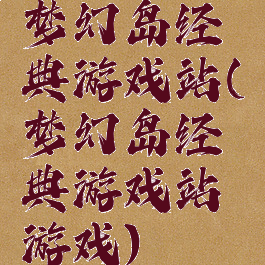 梦幻岛经
典游戏站(
梦幻岛经
典游戏站
游戏)